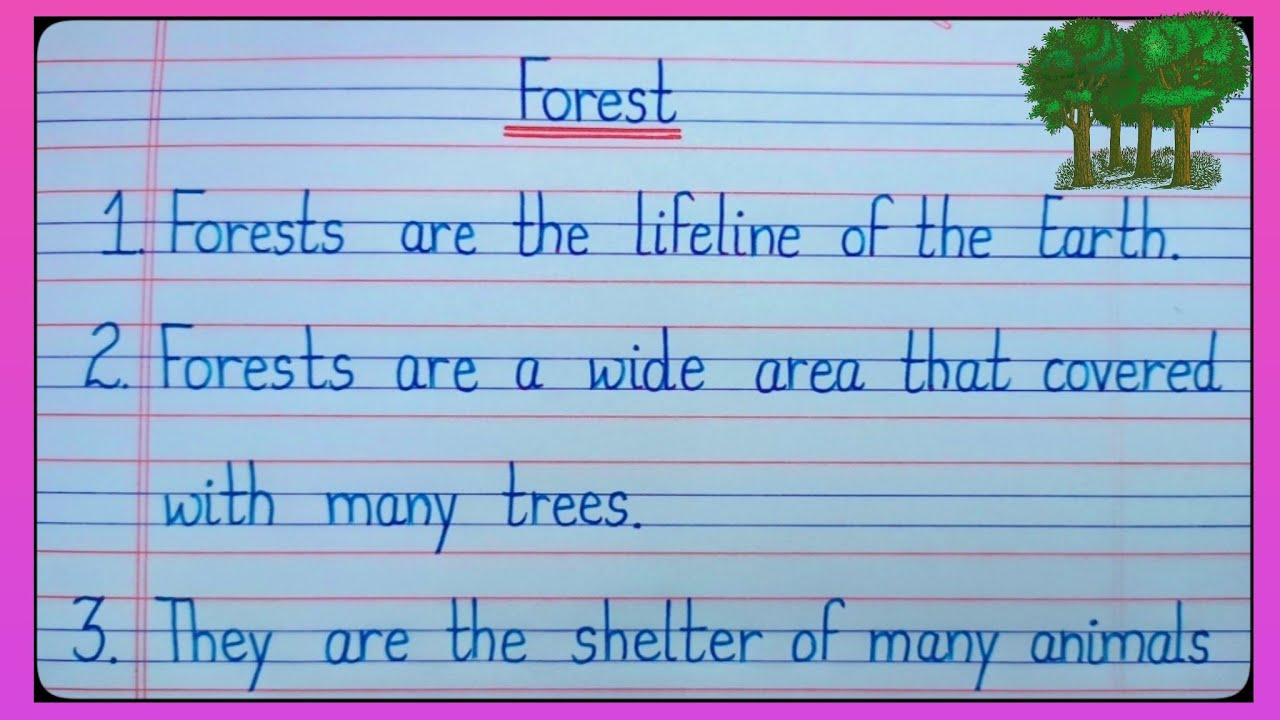 Forest
1. Forests are the lifeline of the Earth.
2. Forests are a wide area that covered
with many trees.
3. They are the shelter of many animals